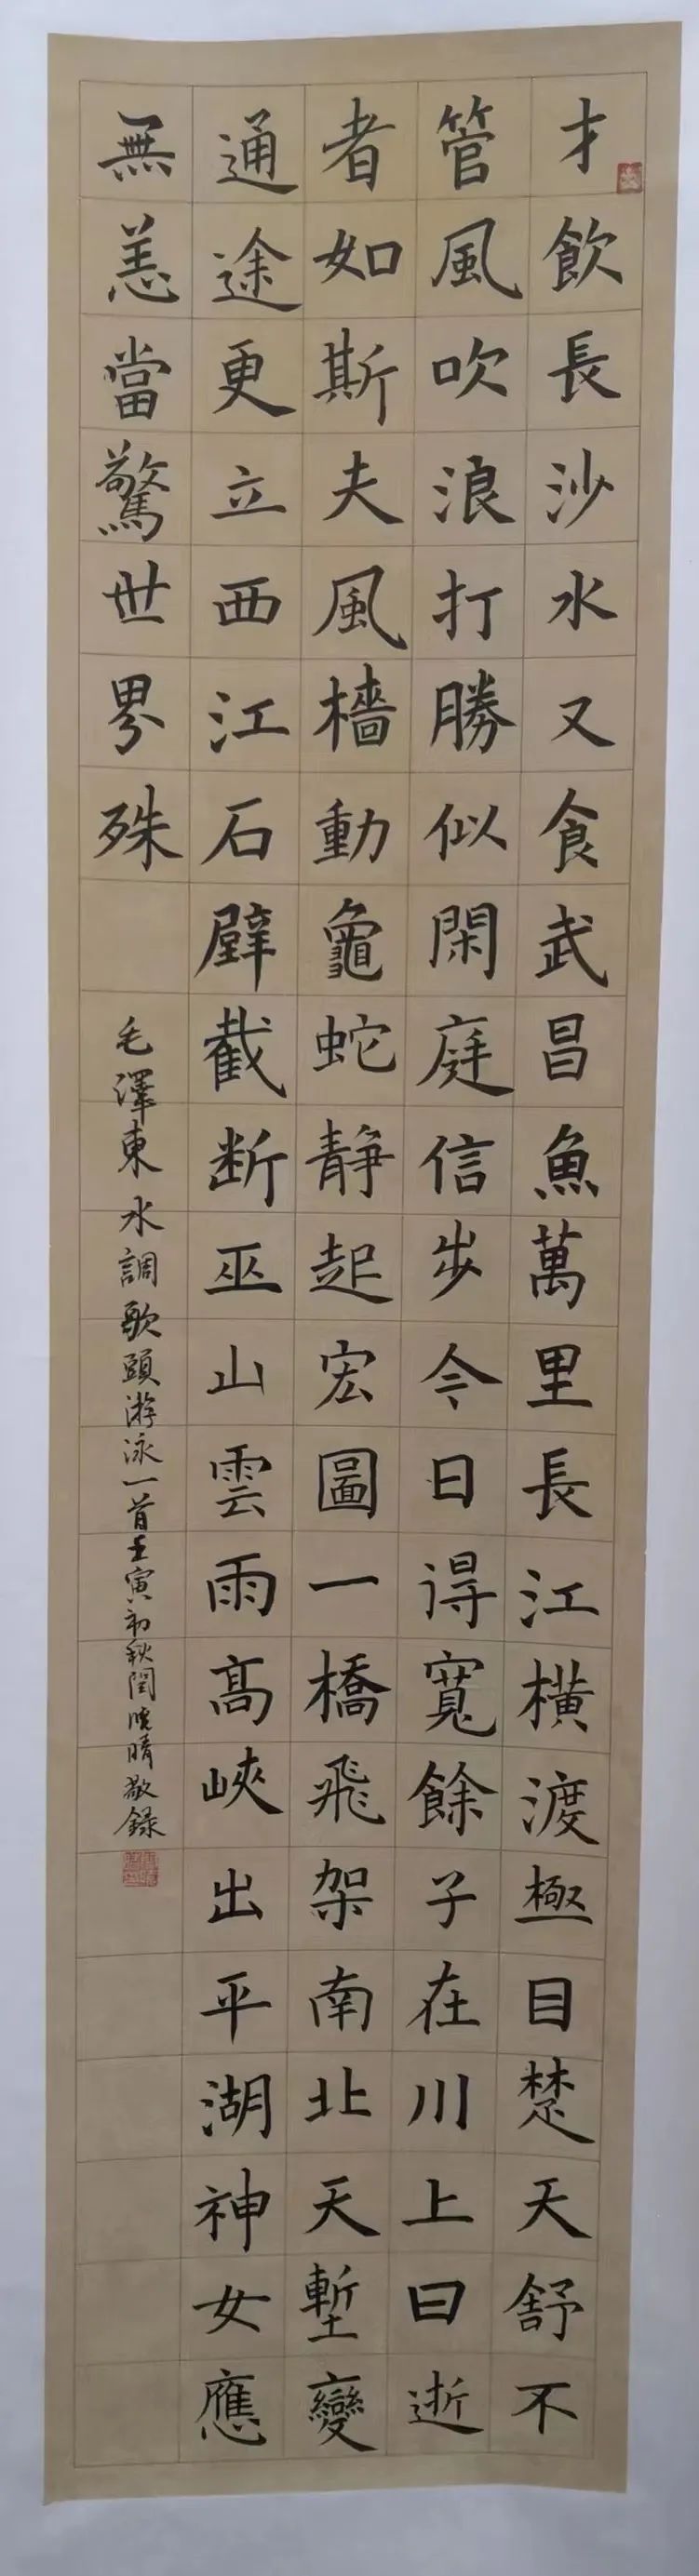 才飲長沙水又食武昌魚萬里長江橫渡極目楚天舒不
管風吹浪打勝似閑庭信步今日得寬餘子在川上曰逝
者如斯夫風檣動龜蛇靜起宏圖一橋飛架南北天塹變
通途更立西江石壁截断巫山雲雨高峽出平湖神女應
無恙當驚世界殊
毛澤東水調歌頭游泳一首壬寅初秋閆曉晴敬録